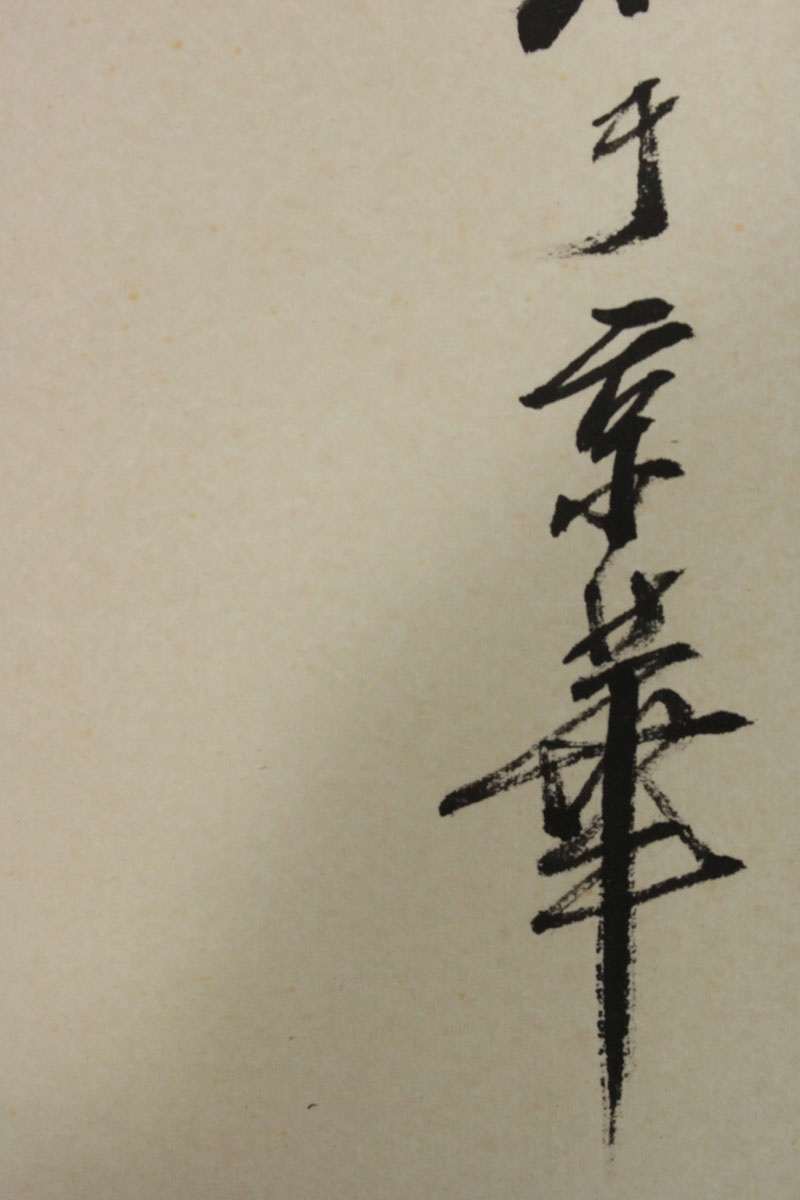 于京華